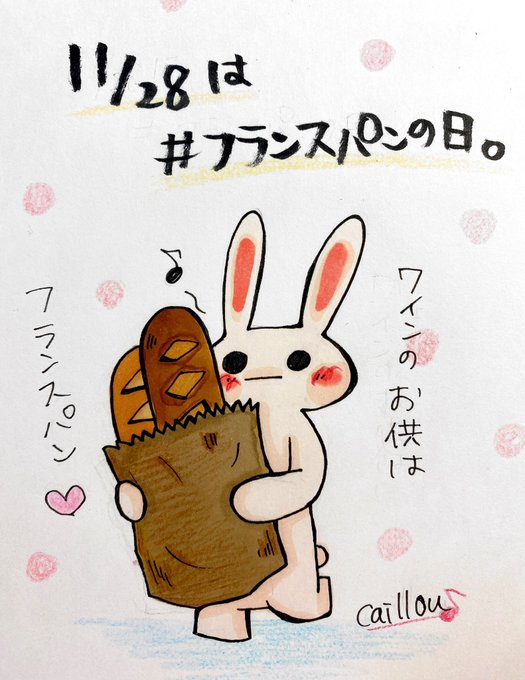 11/28は
#フランスパンの日。
ワインのお供は
フランスパン♡
caillou♪